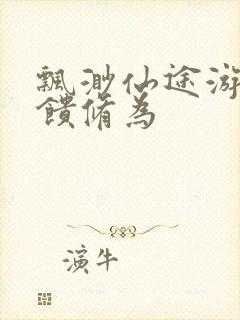 飘渺仙途游
馈脩为
演牛